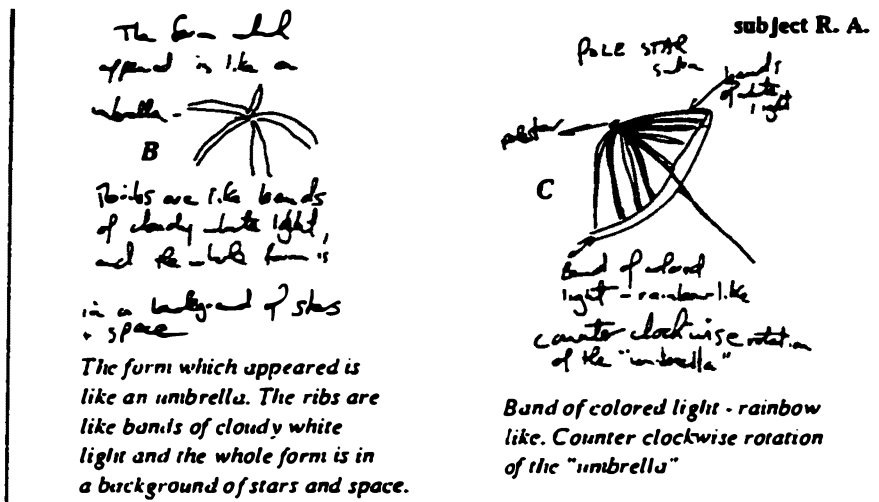 The form which
appeared is like an
umbrella.
B
Ribs are like bands
of cloudy white light,
and the whole form is
in a background of stars
+ space
The form which appeared is
like an umbrella. The ribs are
like bands of cloudy white
light and the whole form is in
a background of stars and space.
subject R. A.
POLE STAR
bands
of white
light
polestar
C
Band of colored
light - rainbow like
counter clockwise rotation
of the "umbrella"
Band of colored light - rainbow
like. Counter clockwise rotation
of the "umbrella"